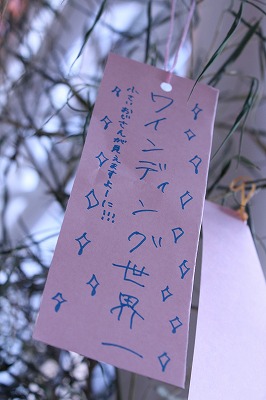 ワインディング世界一
小さいおじさんが見えますよーに!!!